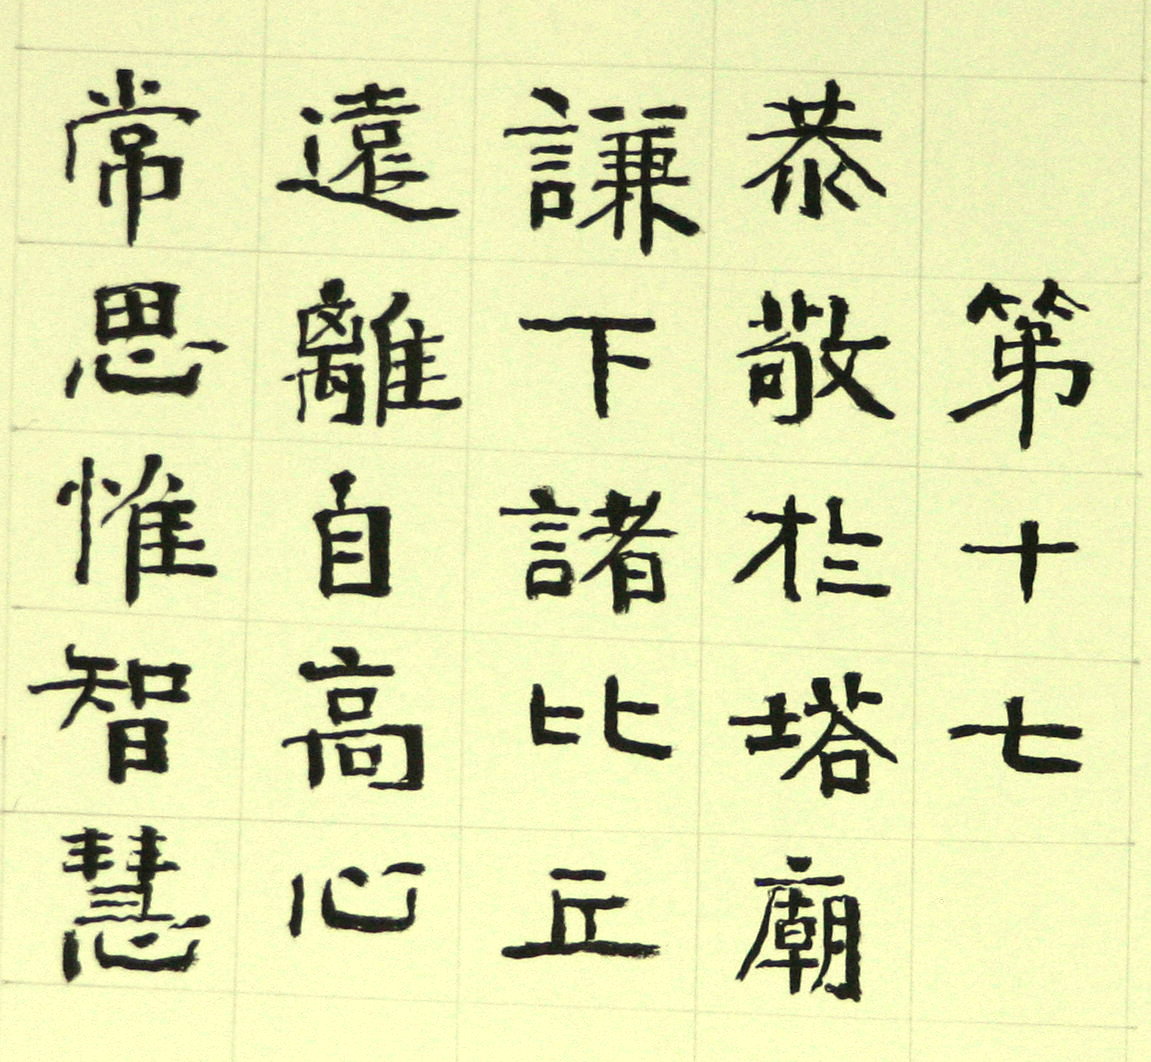 第十七
恭敬於塔廟
謙下諸比丘
遠離自高心
常思惟智慧